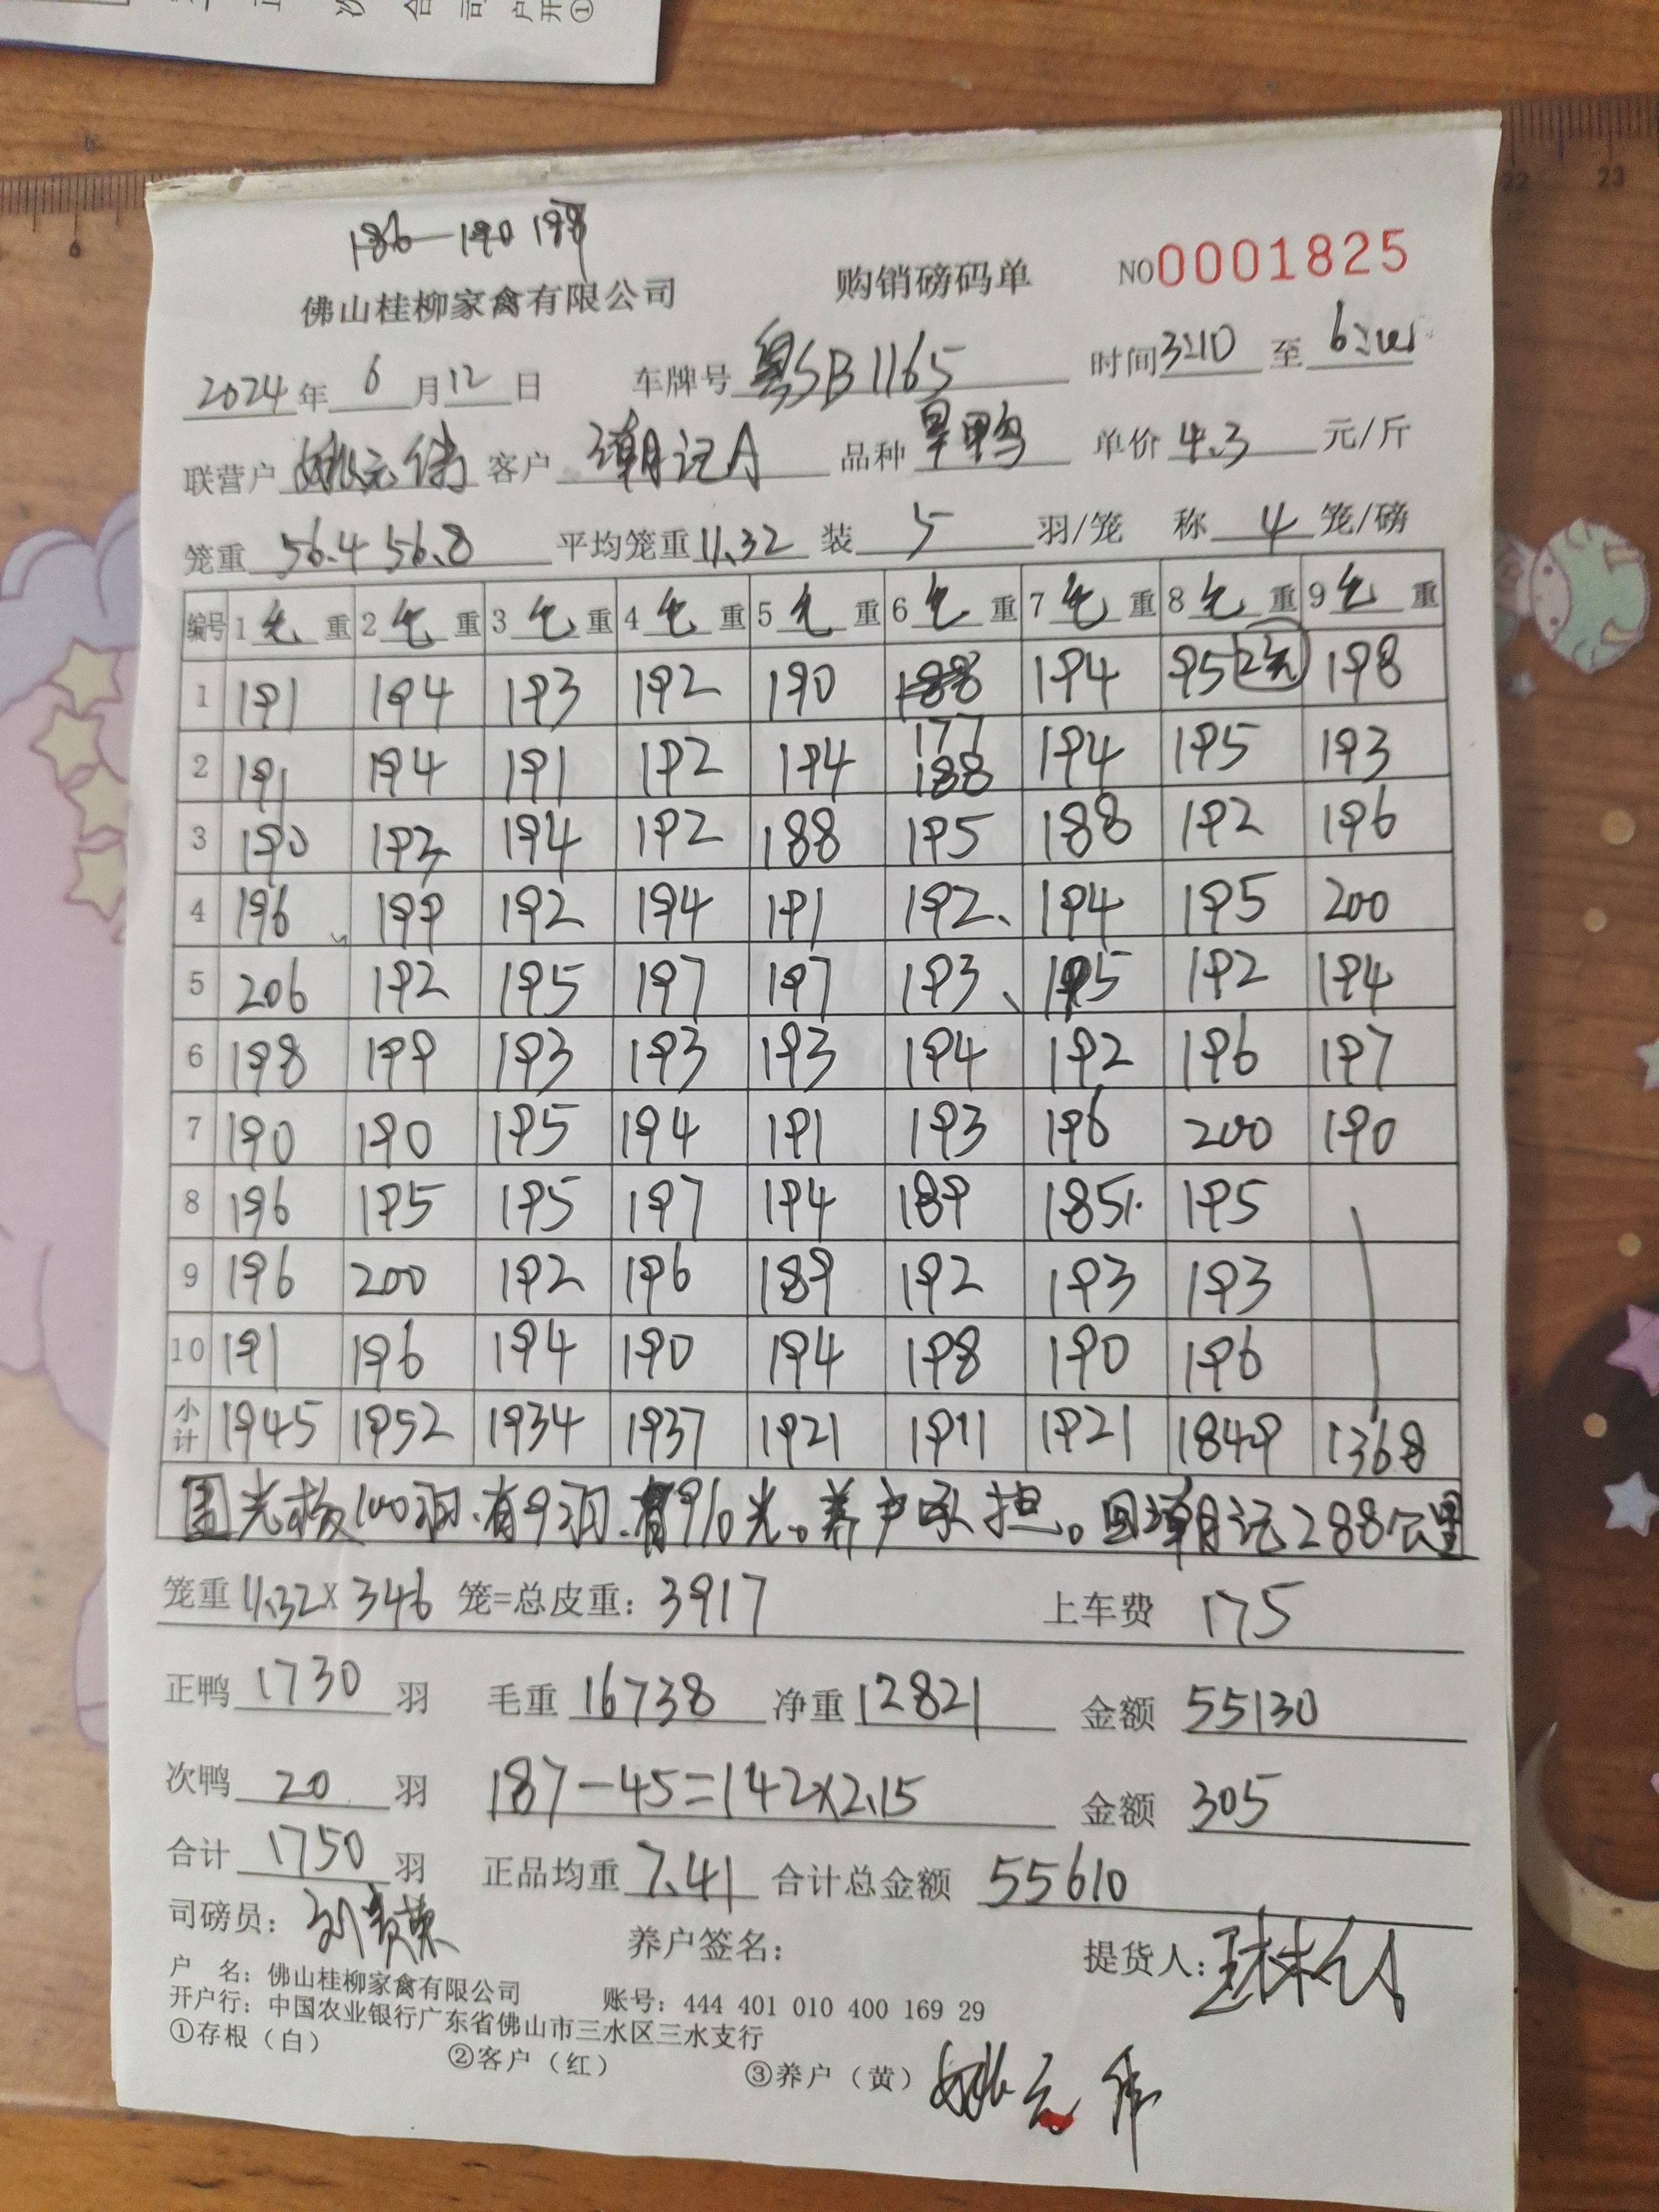 186—190 188
佛山桂柳家禽有限公司 购销磅码单 NO0001825
2024年 6 月12日 车牌号 粤SB1165 时间3:10 至
联营户 姚元伟 客户 潮记A 品种 旱鸭 单价 4.3 元/斤
笼重 56.4 56.8 平均笼重 11.32 装 5 羽/笼 称 4 笼/磅
编号 1 毛 重 2 毛 重 3 毛 重 4 毛 重 5 毛 重 6 毛 重 7 毛 重 8 毛 重 9 毛 重
1 191 194 193 192 190 194 95 198
2 191 194 191 192 194 177 188 194 195 193
3 190 193 194 192 188 195 188 192 196
4 196 199 192 194 191 192 194 195 200
5 206 192 195 197 197 193 195 192 194
6 198 199 193 193 193 194 192 196 197
7 190 190 195 194 191 193 196 200 190
8 196 195 195 197 194 189 185 195
9 196 200 192 196 189 192 193 193
10 191 196 194 190 194 198 190 196
小计 1945 1952 1934 1937 1921 1911 1921 1849 1368
光板100羽、有9羽、有9%光。养户承担。回潮记288公里
笼重 11.32×346 笼=总皮重：3917 上车费 175
正鸭 1730 羽 毛重 16738 净重 12821 金额 55130
次鸭 20 羽 187-45=142×2.15 金额 305
合计 1750 羽 正品均重 7.41 合计总金额 55610
司磅员： 养户签名： 提货人：
户 名：佛山桂柳家禽有限公司 账号：444 401 010 400 169 29
开户行：中国农业银行广东省佛山市三水区三水支行
①存根（白） ②客户（红） ③养户（黄） 姚元伟